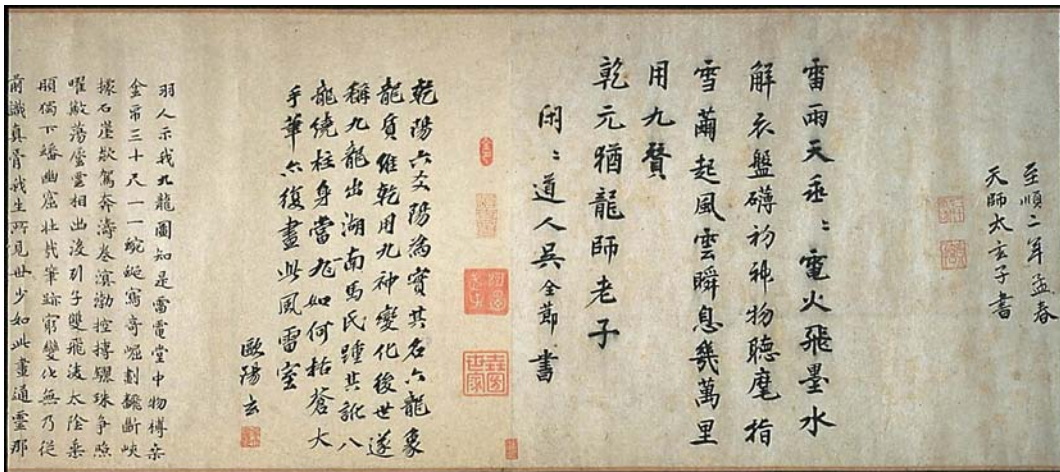 至順二年孟春
天師太玄子書
雷雨天垂〻電火飛墨水
解衣盤礴初神物聽麾指
雪繭起風雲瞬息幾萬里
用九贊
乾元猶龍師老子
閑〻道人吳全節書
乾陽六爻陽為實其名六龍象
龍質維乾用九神變化後世遂
稱九龍出湖南馬氏踵其訛八
龍繞柱身當九如何枯蒼大
手筆亦復畫此風雷室
歐陽玄
羽人示我九龍圖知是雷電堂中物榑桑
金帛三十尺一一蜿蜒寫奇崛劃巉斷峽
據石崖欻駕奔濤卷溟渤控摶驪珠爭照
曜歊蕩相出沒引子雙飛淩太陰垂
頤獨下蟠幽窟壯哉筆跡窮變化無乃從
前識真骨我生所見世少如此畫通靈那